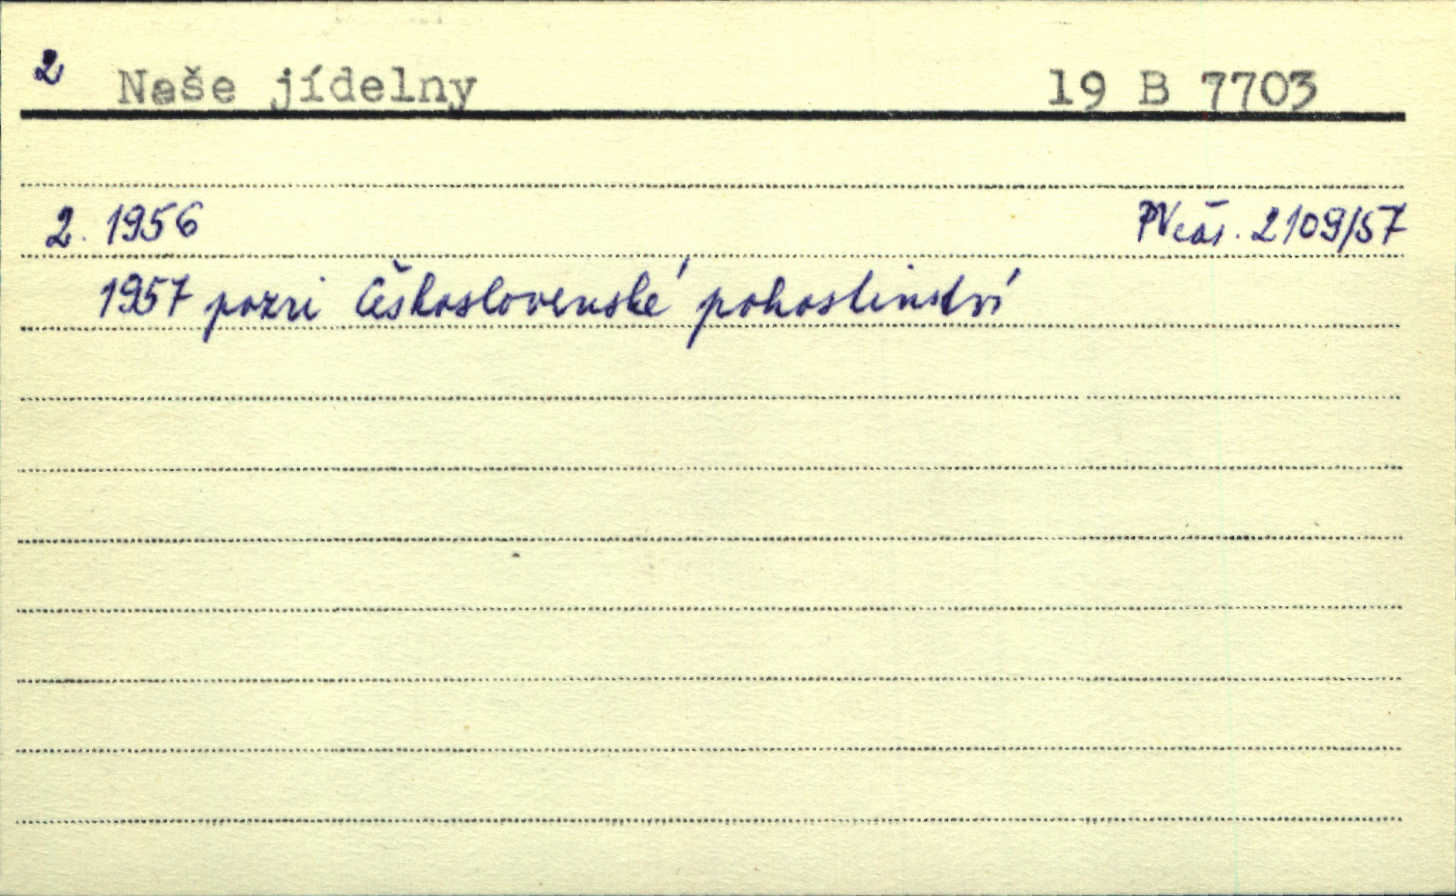 2 Naše jídelny 19 B 7703
2. 1956 PVčas. 2109/57
1957 pozri Československé pohostinství